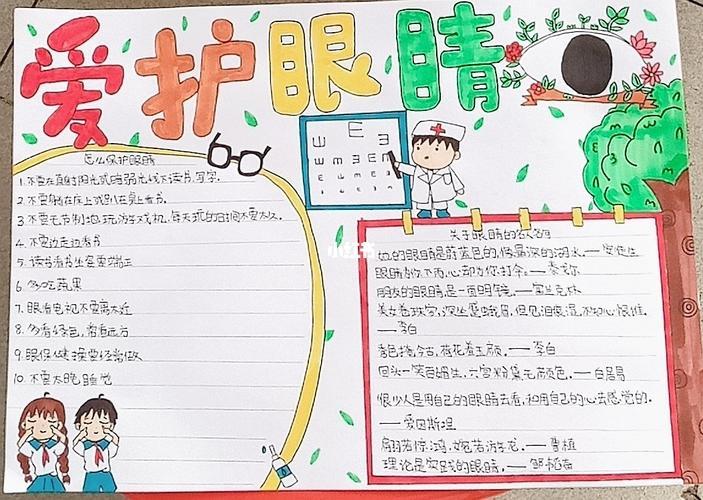 爱护眼睛
怎么保护眼睛
1.不要在直射阳光或暗弱光线下读书、写字。
2.不要躺在床上或趴在桌上看书。
3.不要无节制地玩游戏机,每天玩的时间不要太久。
4.不要边走边看书
5.读书看书坐姿要端正
6.多吃蔬果
7.眼看电视不要离太近
8.多看绿色,常看远方
9.眼保健操要经常做
10.不要太晚睡觉
E
小红书
关于眼睛的名人名言
她的眼睛是蔚蓝色的,像最深的湖水。——安徒生
眼睛为你下雨,心却为你打伞。——泰戈尔
朋友的眼睛是一面明镜。
美女卷珠帘,深坐颦蛾眉,但见泪痕湿,不知心恨谁。
——李白
秀色掩今古,荷花羞玉颜。——李白
回头一笑百媚生,六宫粉黛无颜色。——白居易
很少人是用自己的眼睛去看,和用自己的心去感觉的。
——爱因斯坦
翩若惊鸿,婉若游龙。——曹植
理论是实践的眼睛。——邹韬奋